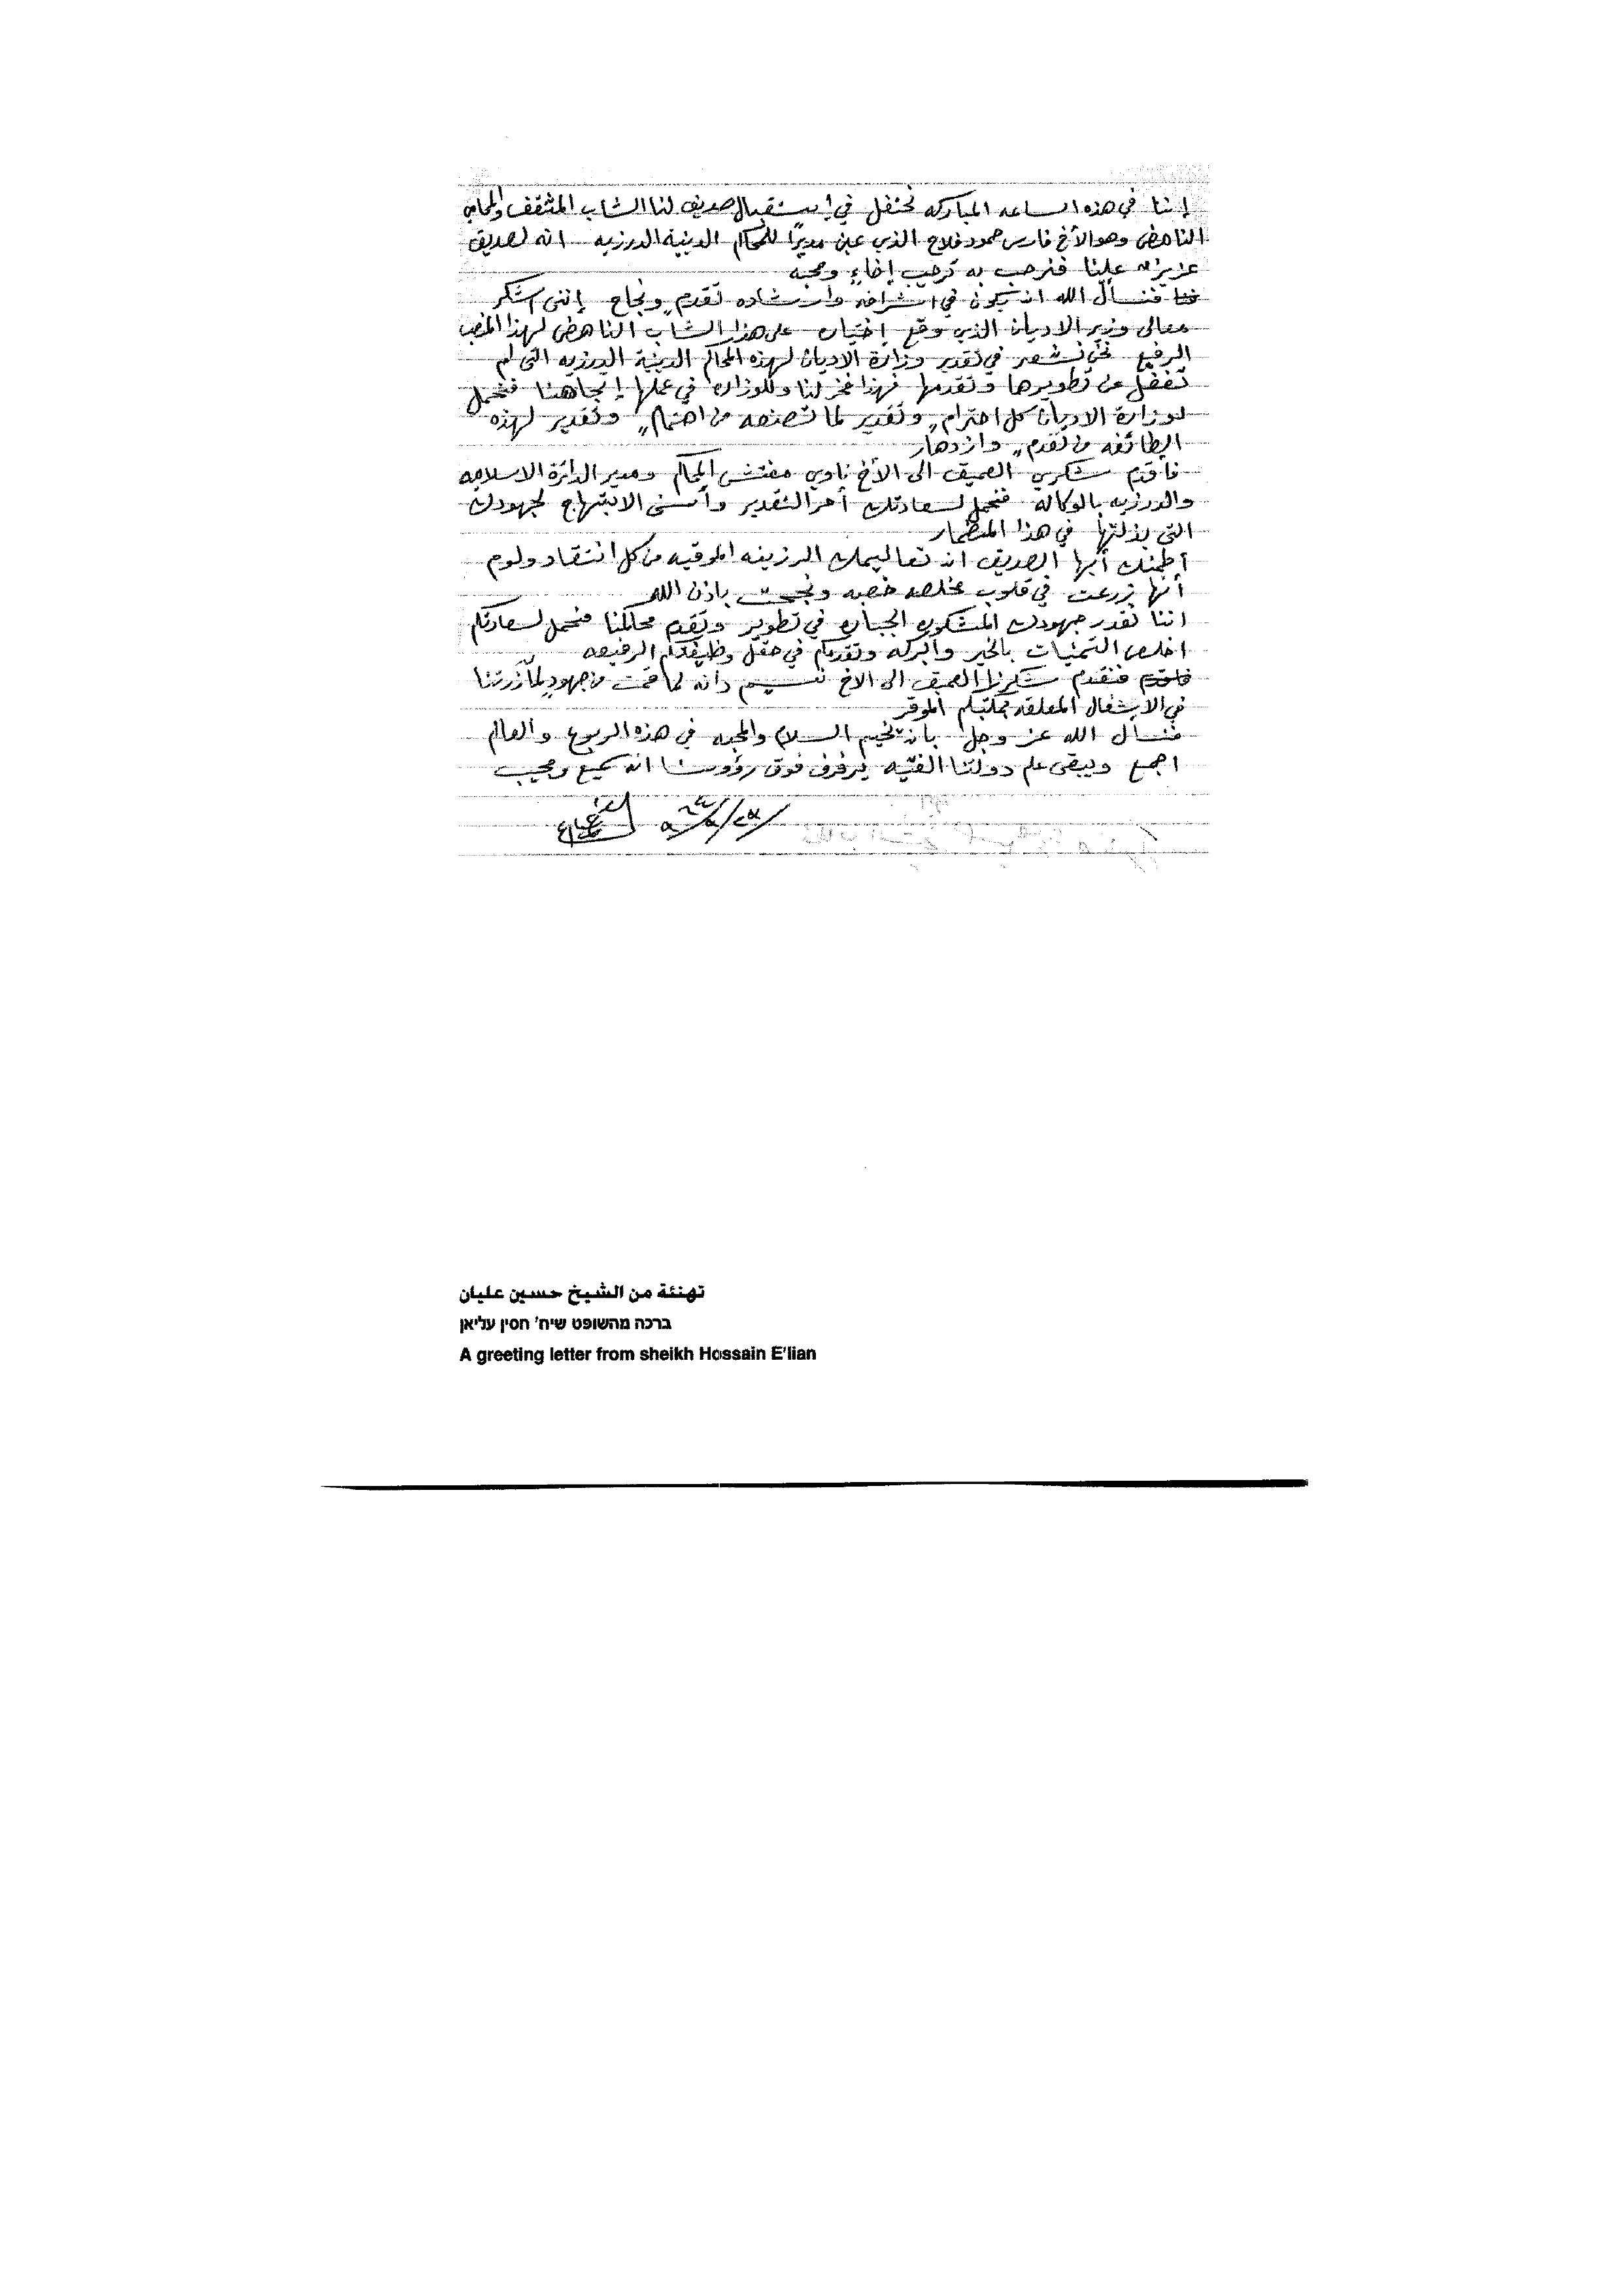 إننا في هذه الساعه المباركه نحتفل في إستقبال صديق لنا الشاب المثقف والمحامي
الناهض وهو الأخ فارس حمود فلاح الذي عين مديرًا للمحاكم الدينية الدرزيه انه لصديق
عزيز علينا فنرحب به ترحيب إخاءٍ ومحبه
فنسأل الله ان يكون في اشرافه وارشاده تقدم ونجاح إنني اشكر
معالي وزير الاديان الذي وقع إختياره على هذا الشاب الناهض لهذا المنصب
الرفيع نحن نشعر في تقدير وزارة الاديان لهذه المحاكم الدينية الدرزيه التي لم
تغفل عن تطويرها وتقدمها فهذا فخر لنا وللوزاره في عملها إتجاهنا فنحمل
لوزارة الاديان كل احترام وتقدير لما تصنعه من اهتمام وتقدير لهذه
الطائفه من تقدم وازدهار
فأقدم شكري العميق الى الأخ ناوي مفتش المحاكم ومدير الدائرة الاسلاميه
والدرزيه بالوكالة فنحمل لسعادتك أحر التقدير وأسنى الابتهاج لجهودك
التي بذلتها في هذا المضمار
أطمنك أيها الصديق ان تعاليمك الرزينه الموقيه من كل انتقاد ولوم
أنها زرعت في قلوب مخلصه خصبه ونجحت باذن الله
اننا نقدر جهودك المشكوره الجباره في تطوير وتقدم محاكمنا فنحمل لسعادتكم
اخلص التمنيات بالخير والبركه وتقدمكم في حقل وظيفتكم الرفيعه
فنقدم شكرنا العميق الى الاخ نسيم دانه لما قمت من جهود لمآزرتنا
في الاشغال المعلقه بمكتبكم الموقر
فنسأل الله عز وجل بان يخيم السلام والمحبه في هذه الربوع والعالم
اجمع ويبقى علم دولتنا الفتيه يرفرف فوق رؤوسنا انه سميع ومجيب
تهنئة من الشيخ حسين عليان
ברכה מהשופט שיח' חסין עליאן
A greeting letter from sheikh Hossain E'lian